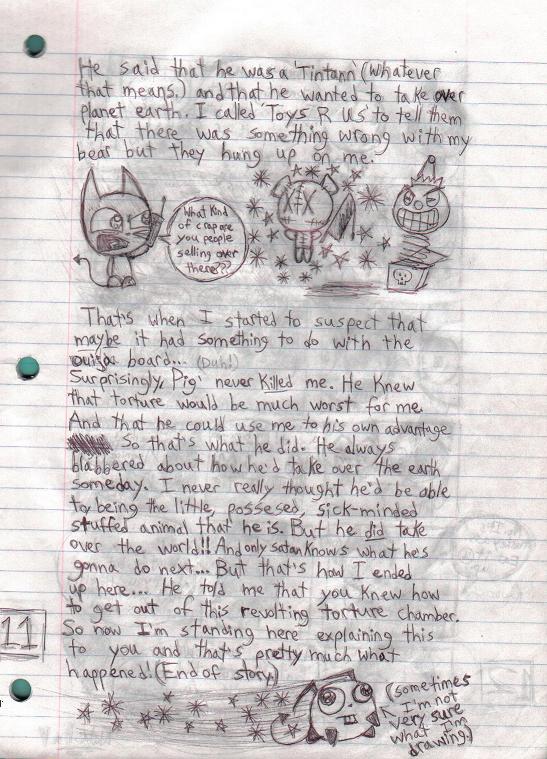 He said that he was a 'Tintann' (whatever
that means.) and that he wanted to take over
planet earth. I called 'Toys R Us' to tell them
that there was something wrong with my
bear but they hung up on me.
What kind
of crap are
you people
selling over
there???
That's when I started to suspect that
maybe it had something to do with the
ouija board... (Duh!)
Surprisingly, 'Pig' never killed me. He knew
that torture would be much worst for me.
And that he could use me to his own advantage
So that's what he did. He always
blabbered about how he'd take over the earth
someday. I never really thought he'd be able
to, being the little, possesed, sick-minded
stuffed animal that he is. But he did take
over the world!! And only satan knows what he's
gonna do next... But that's how I ended
up here... He told me that you knew how
to get out of this revolting torture chamber.
So now I'm standing here explaining this
to you and that's pretty much what
happened! (End of story)
11
(sometimes
I'm not
very sure
what I'm
drawing.)